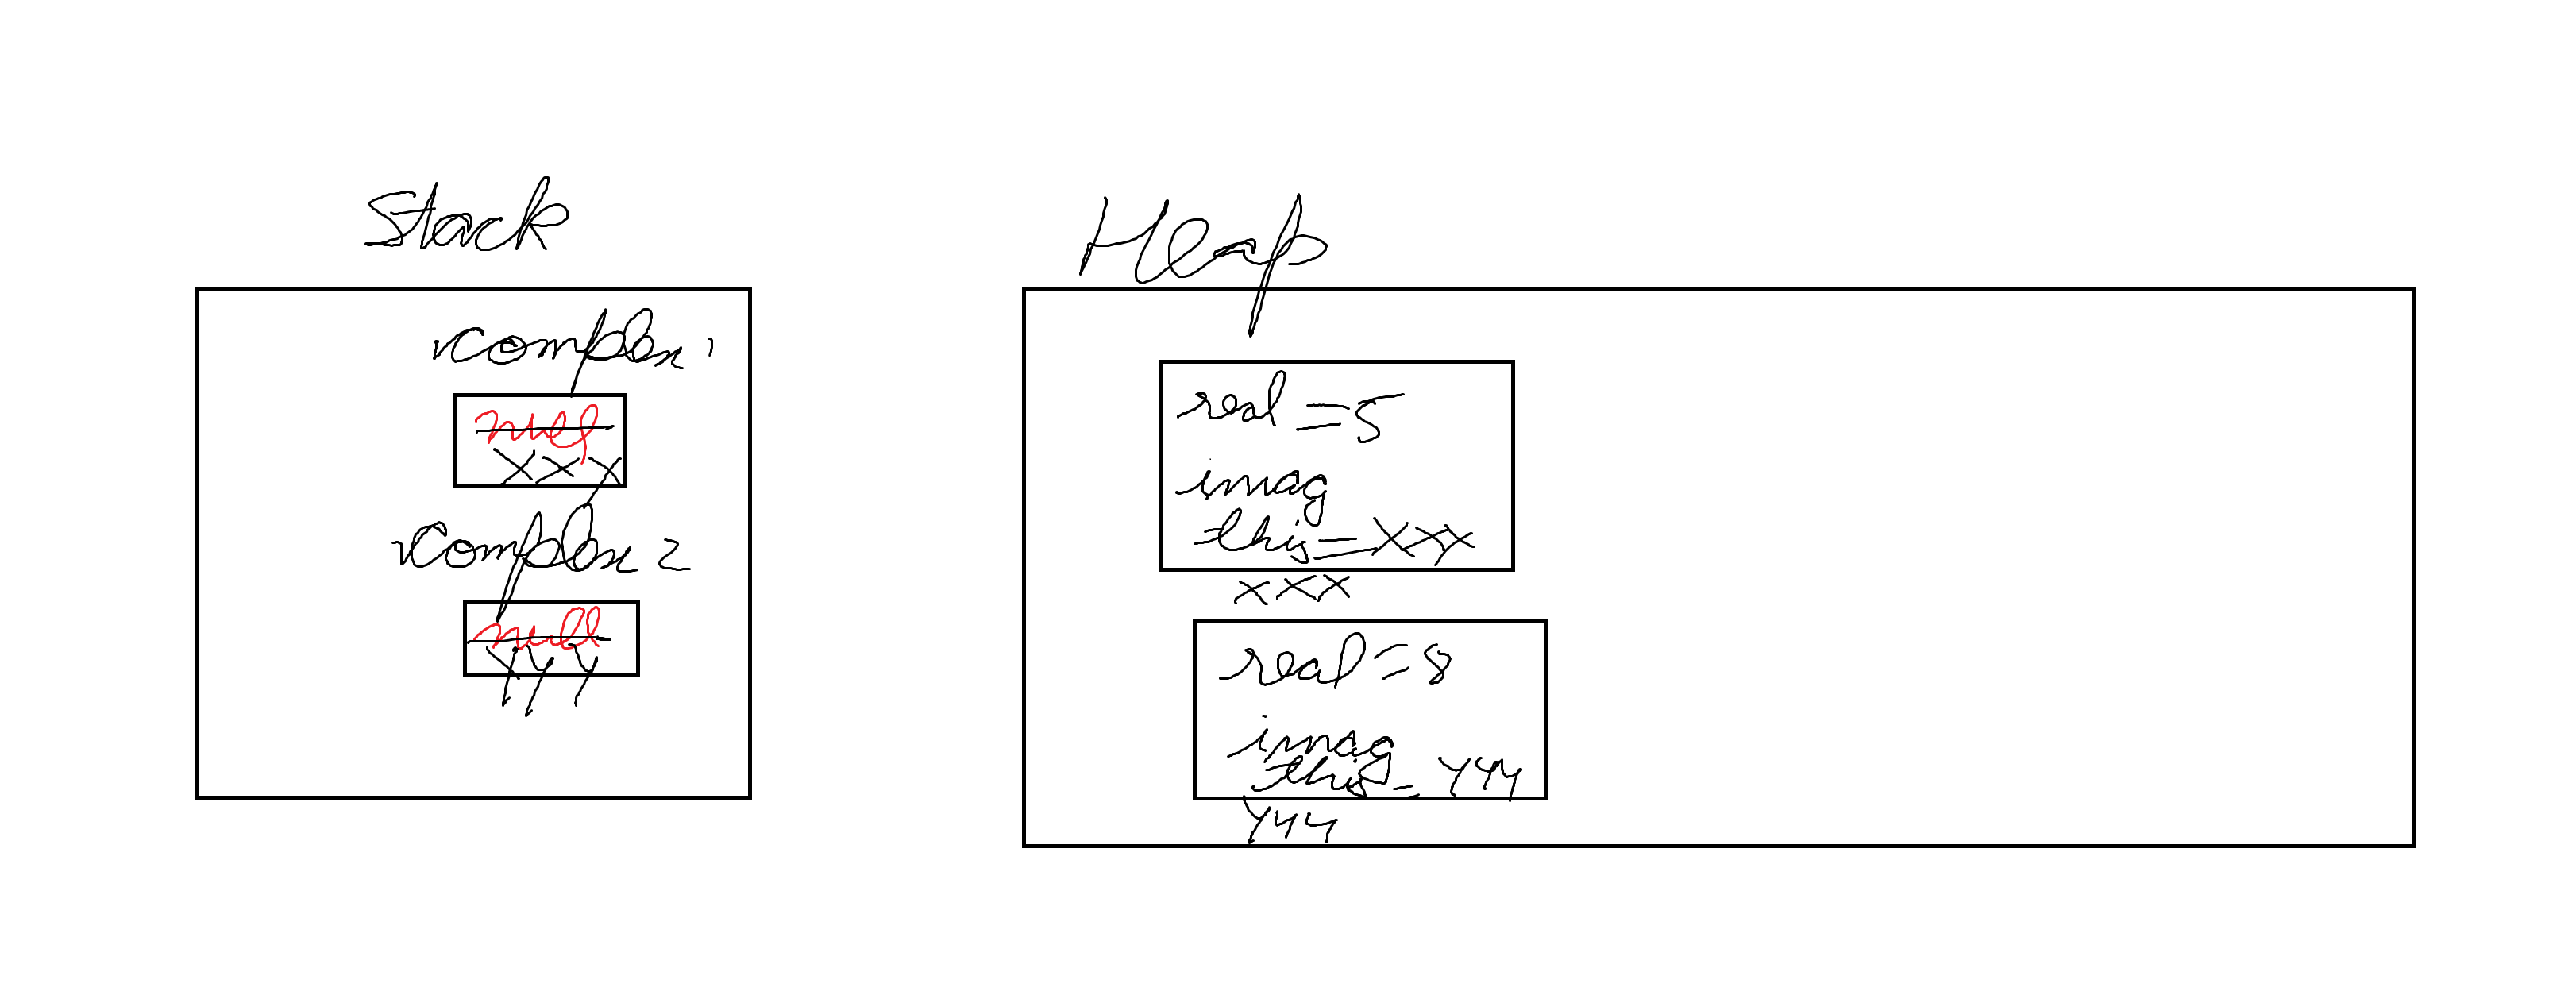 Stack
complex 1
null
XXX
complex 2
null
YYY
Heap
real = 5
imag
this = XXX
XXX
real = 8
imag
this = YYY
YYY